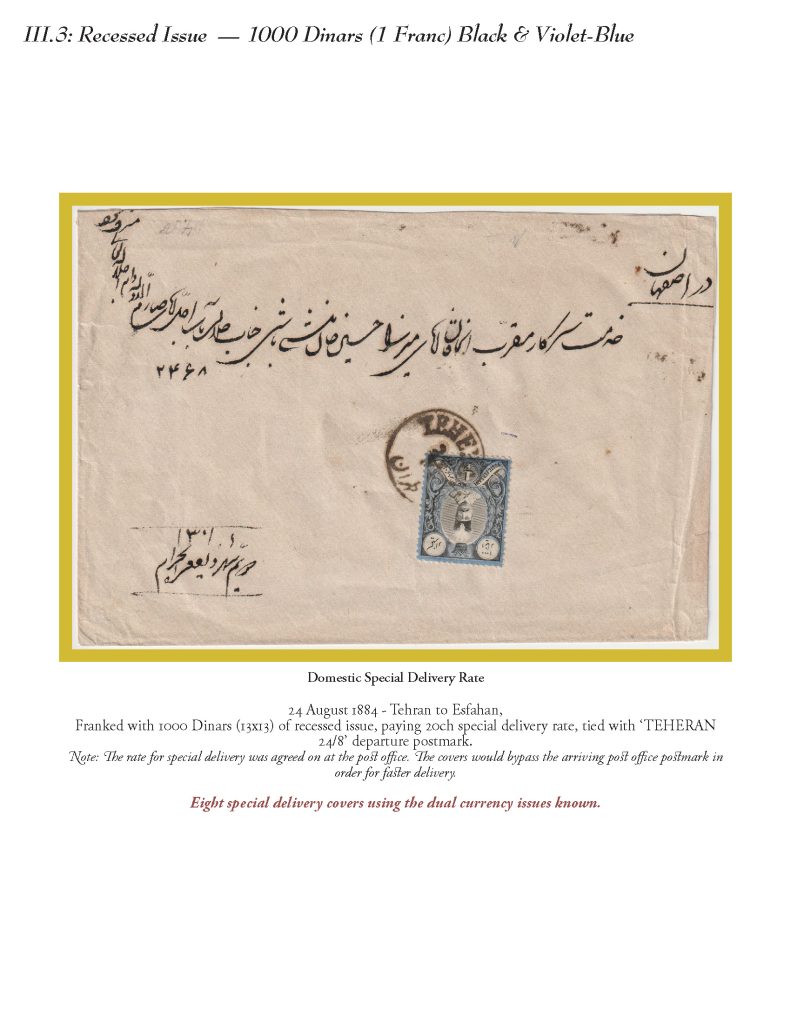 III.3: Recessed Issue — 1000 Dinars (1 Franc) Black & Violet-Blue
در اصفهان
خدمت سرکار مقرب الخاقان آقای میرزا حسین خان منشی باشی جناب
۲۴۶۸
TEHE
۱۳۰۱
Domestic Special Delivery Rate
24 August 1884 - Tehran to Esfahan,
Franked with 1000 Dinars (13x13) of recessed issue, paying 20ch special delivery rate, tied with ‘TEHERAN
24/8’ departure postmark.
Note: The rate for special delivery was agreed on at the post office. The covers would bypass the arriving post office postmark in
order for faster delivery.
Eight special delivery covers using the dual currency issues known.